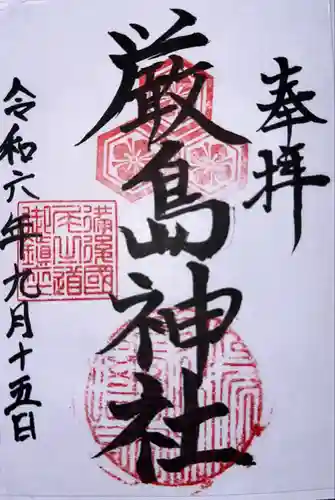 奉拝
厳島神社
備後國
尾道
御鎮座
令和六年九月十五日